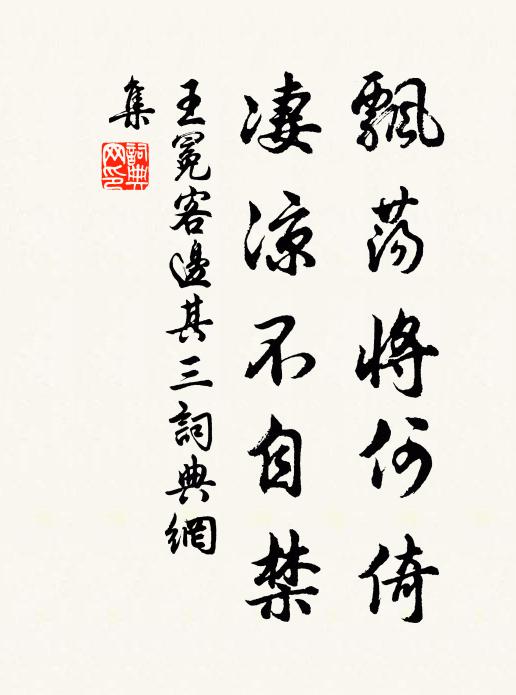 飄蕩將何倚
凄涼不自禁
王冕客邊其三詞典網
集
詞典
网印